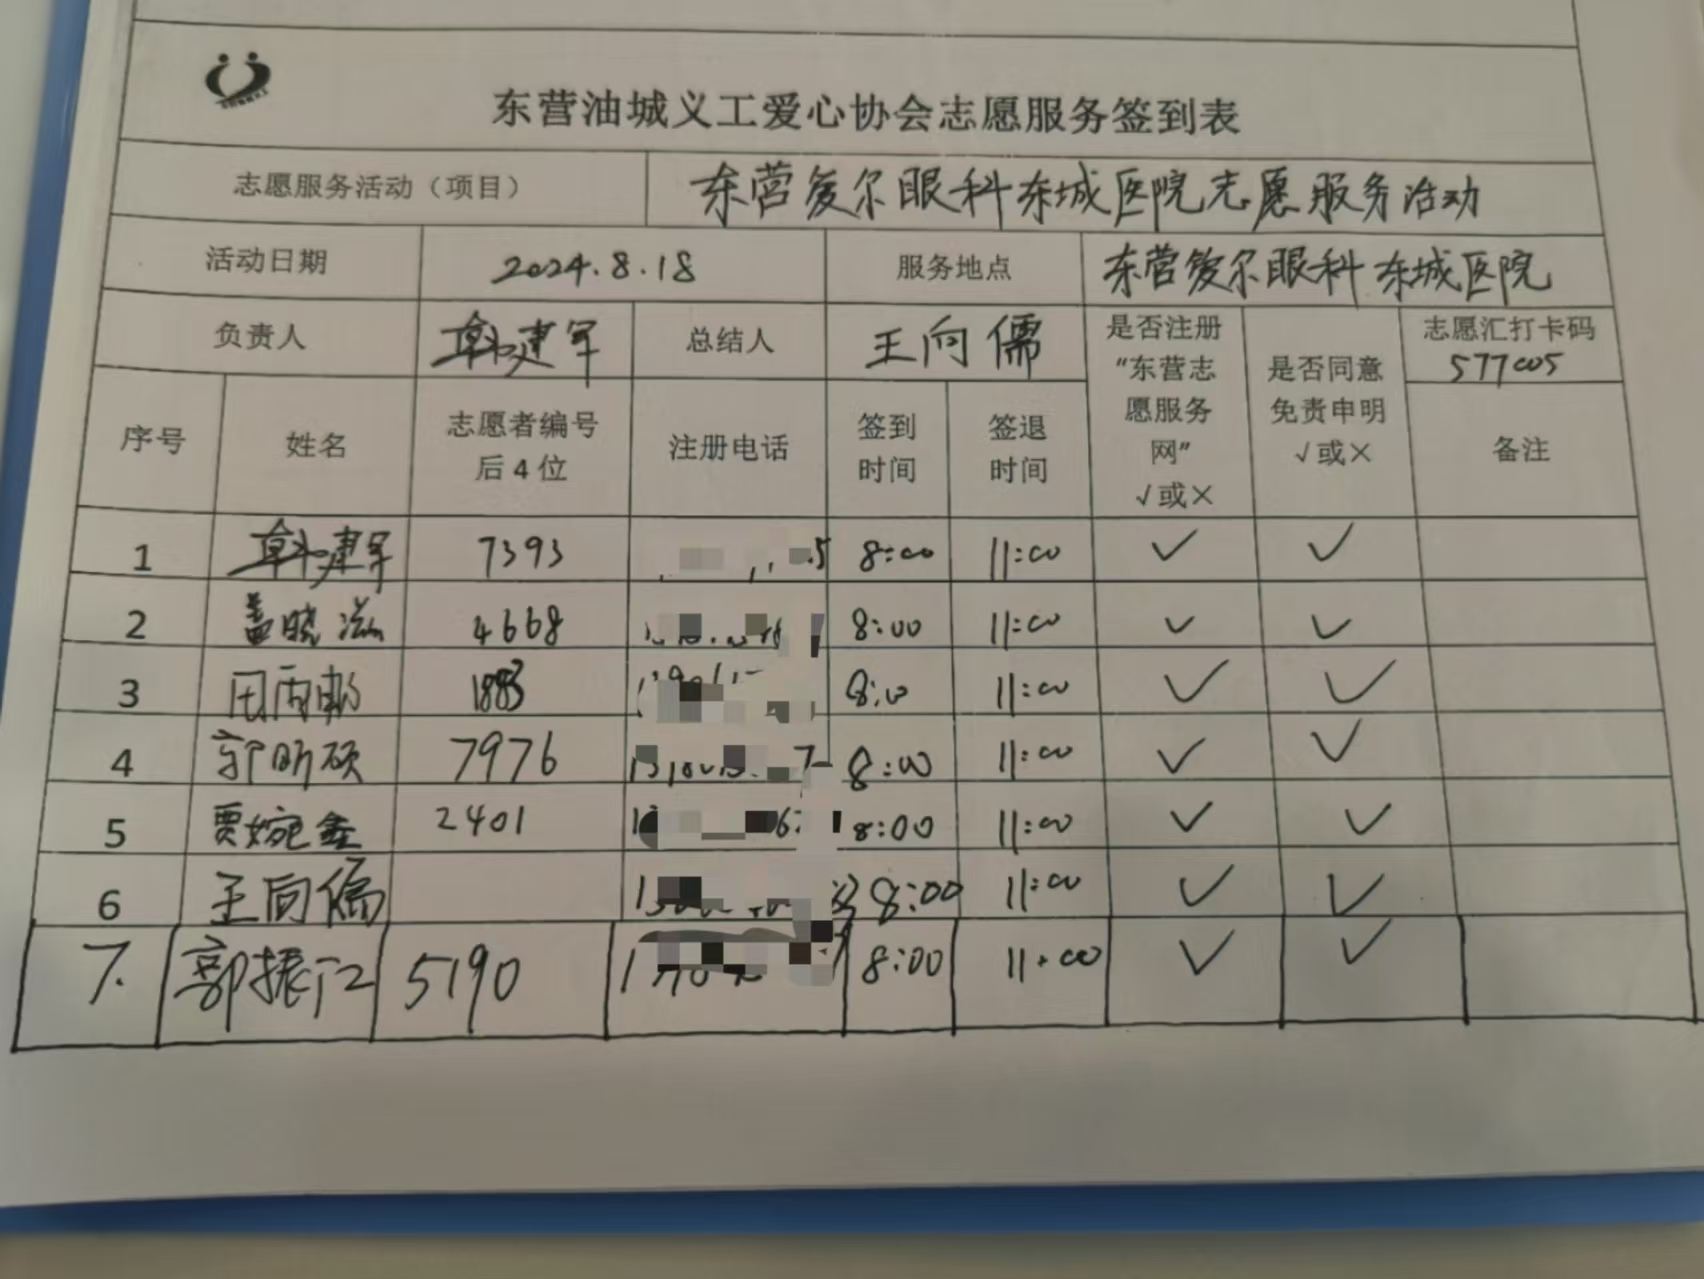 东营油城义工爱心协会志愿服务签到表
志愿服务活动（项目） 东营爱尔眼科东城医院志愿服务活动
活动日期 2024.8.18 服务地点 东营爱尔眼科东城医院
负责人 韩建军 总结人 王向儒 是否注册“东营志愿服务网”√或× 是否同意免责申明√或× 志愿汇打卡码 577005
序号 姓名 志愿者编号后4位 注册电话 签到时间 签退时间 备注
1 韩建军 7393 8:00 11:00 √ √
2 盖晓滋 4668 8:00 11:00 √ √
3 1883 8:00 11:00 √ √
4 郭昕硕 7976 8:00 11:00 √ √
5 贾婉鑫 2401 8:00 11:00 √ √
6 王向儒 8:00 11:00 √ √
7. 郭振江 5190 8:00 11:00 √ √